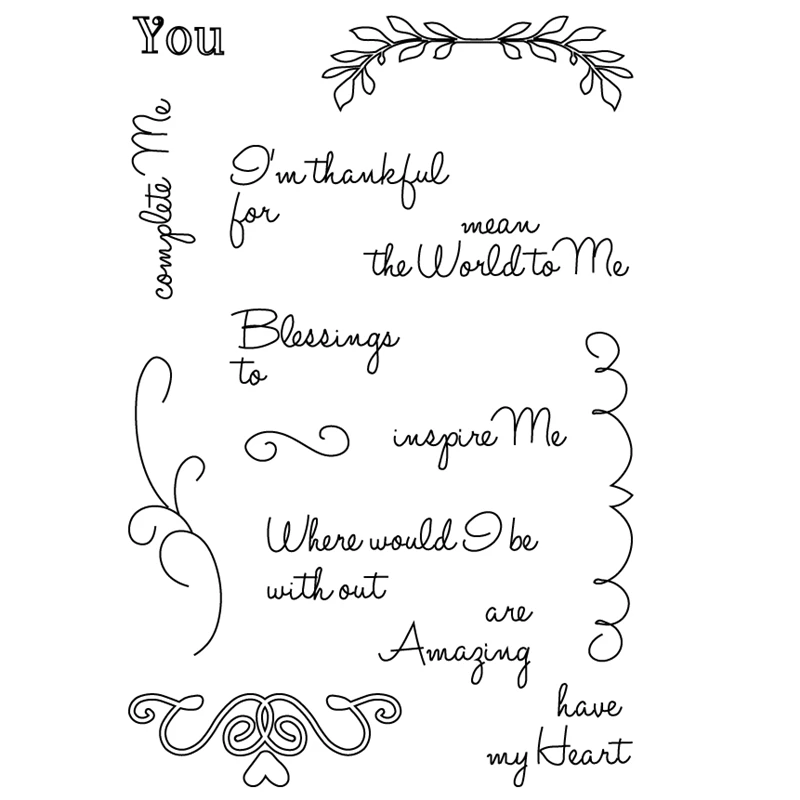 You
complete Me
I'm thankful
for
mean
the World to Me
Blessings
to
inspire Me
Where would I be
with out
are
Amazing
have
my Heart